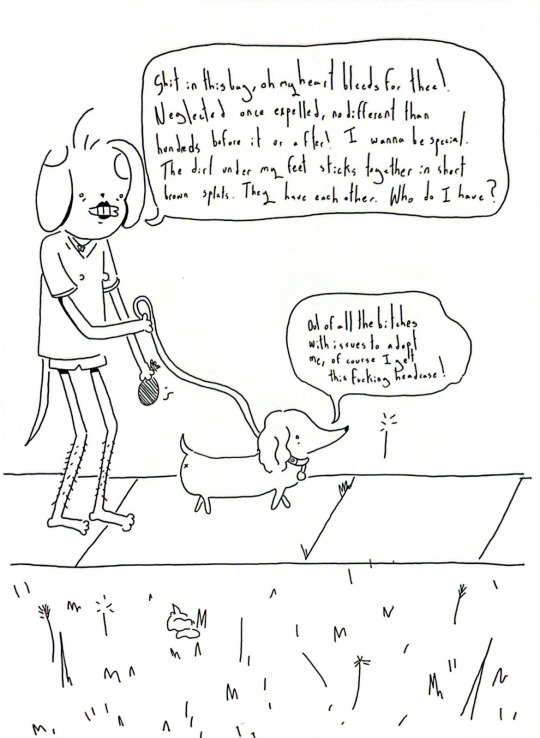 Shit in this bag, oh my heart bleeds for thee!
Neglected once expelled, no different than
hundreds before it or after! I wanna be special.
The dirt under my feet sticks together in short
brown splats. They have each other. Who do I have?
Out of all the bitches
with issues to adopt
me, of course I gett
this fucking headcase!